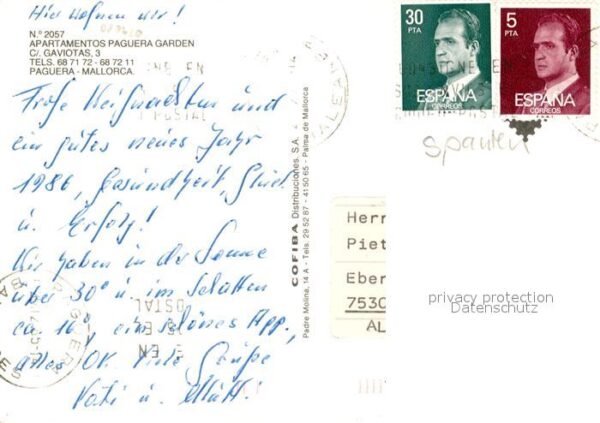 Hier wohnen wir!
N.º 2057
APARTAMENTOS PAGUERA GARDEN
C/. GAVIOTAS, 3
TELS. 68 71 72 - 68 72 11
PAGUERA - MALLORCA.
Frohe Weihnachten und
ein gutes neues Jahr
1986, Gesundheit, Glück
u. Erfolg!
Wir haben in der Sonne
über 30° u. im Schatten
ca. 16°, ein schönes App.,
alles OK. Viele Grüße
Vati u. Mutti!
COFIBA Distribuciones, S.A. - Padre Molina, 14 A - Tels. 29 52 87 - 41 50 65 - Palma de Mallorca
30
PTA
ESPAÑA
CORREOS
5
PTA
ESPAÑA
CORREOS
Spanien
Herr
Piet
Eber
7530
AL
privacy protection
Datenschutz